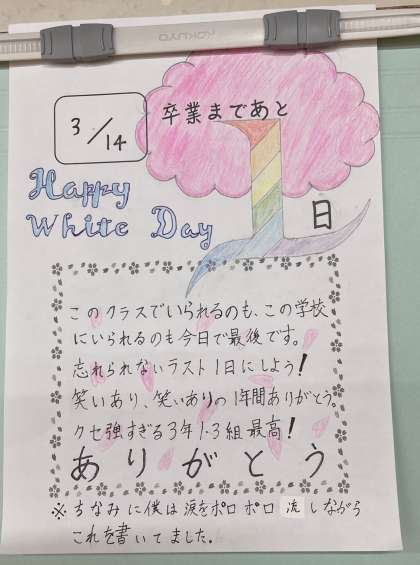 KOKUYO
3/14
卒業まであと
1日
Happy
White Day
このクラスでいられるのも、この学校
にいられるのも今日で最後です。
忘れられないラスト1日にしよう!
笑いあり、笑いありの1年間ありがとう。
クセ強すぎる3年1・3組最高!
ありがとう
※ちなみに僕は涙をポロポロ流しながら
これを書いてました。